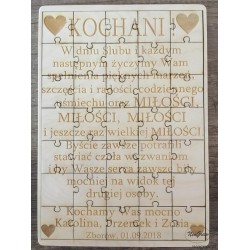 KOCHANI !
W dniu Ślubu i każdym
następnym życzymy Wam
spełnienia pięknych marzeń,
szczęścia i radości codziennego
uśmiechu oraz MIŁOŚCI,
MIŁOŚCI, MIŁOŚCI
i jeszcze raz wielkiej MIŁOŚCI.
Byście zawsze potrafili
stawiać czoła wyzwaniom
i by Wasze serca zawsze były
mocniej na widok tej
drugiej osoby.
Kochamy Was mocno
Karolina, Przemek i Zosia
Zborów, 01.09.2018